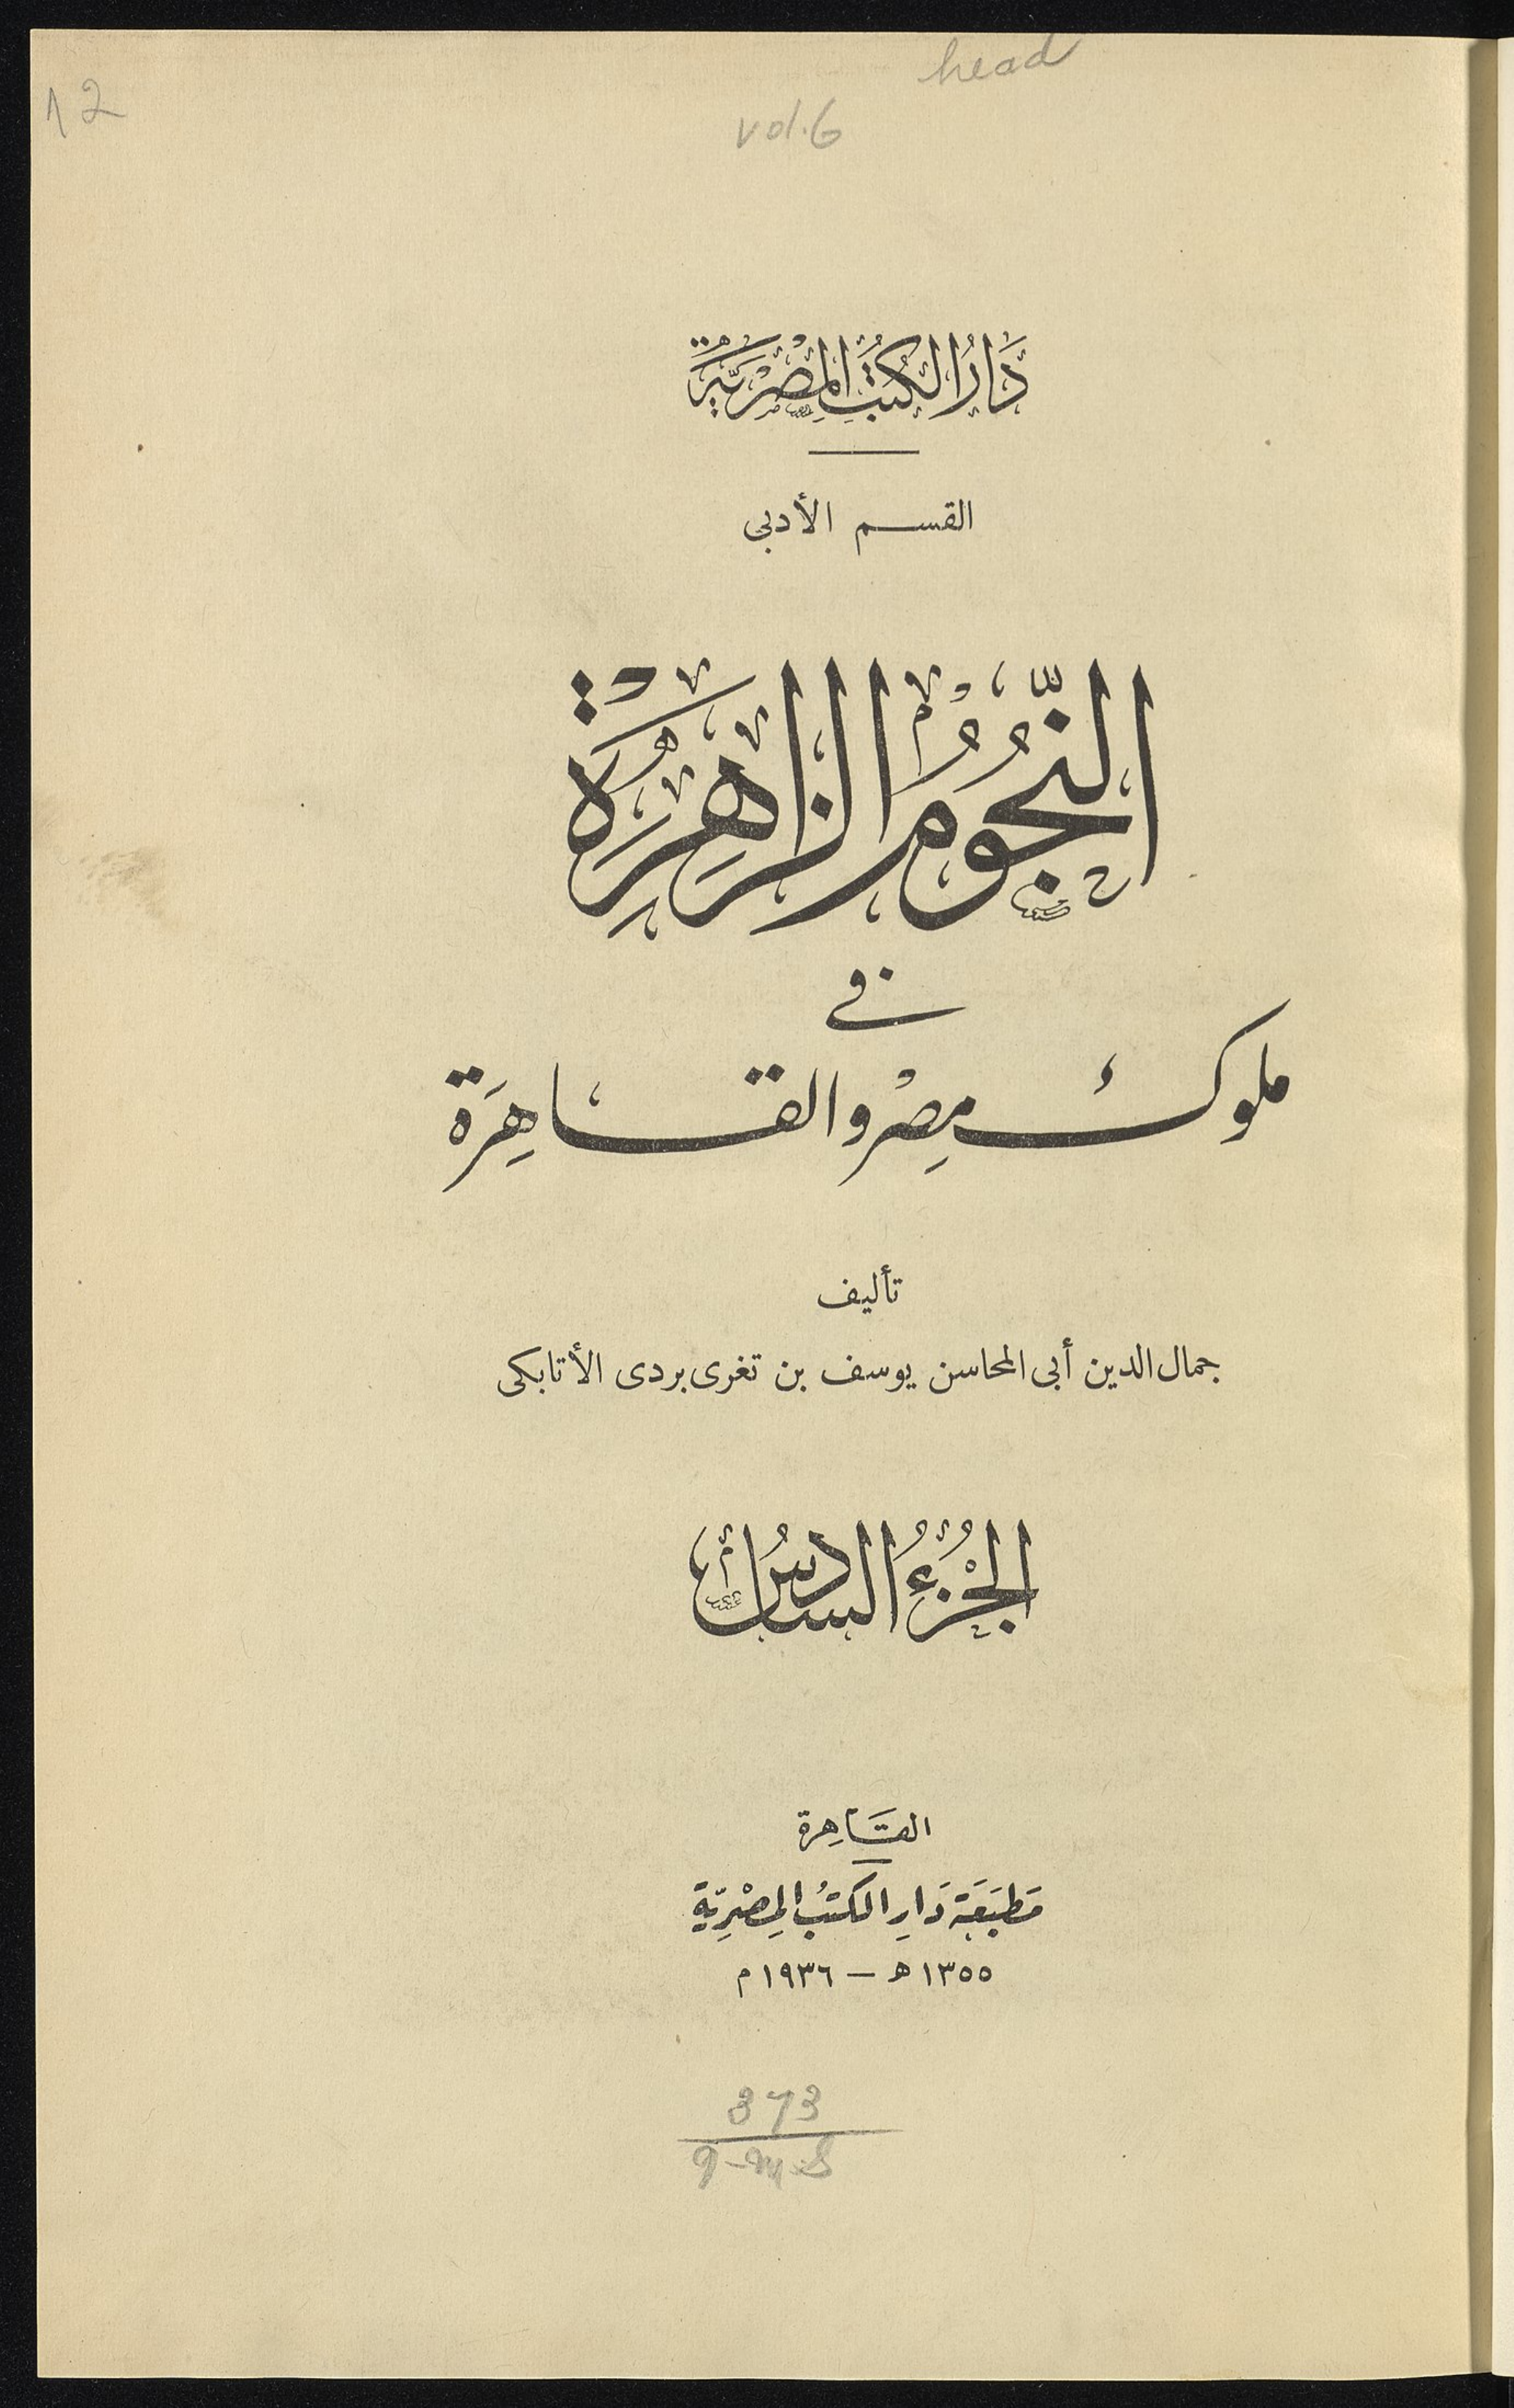 head
12
vol.6
دَارُ الكُتُبِ المِصْرِيَّةِ
القسم الأدبى
النُّجُومُ الزَّاهِرَةُ
فى
ملوك مِصْر والقاهِرَة
تأليف
جمال الدين أبى المحاسن يوسف بن تغرى بردى الأتابكى
الجُزْءُ السَّادِسُ
القَاهِرة
مَطبَعَة دَارِ الكتُبِ المِصْرِيّةِ
١٣٥٥ ه — ١٩٣٦ م
373